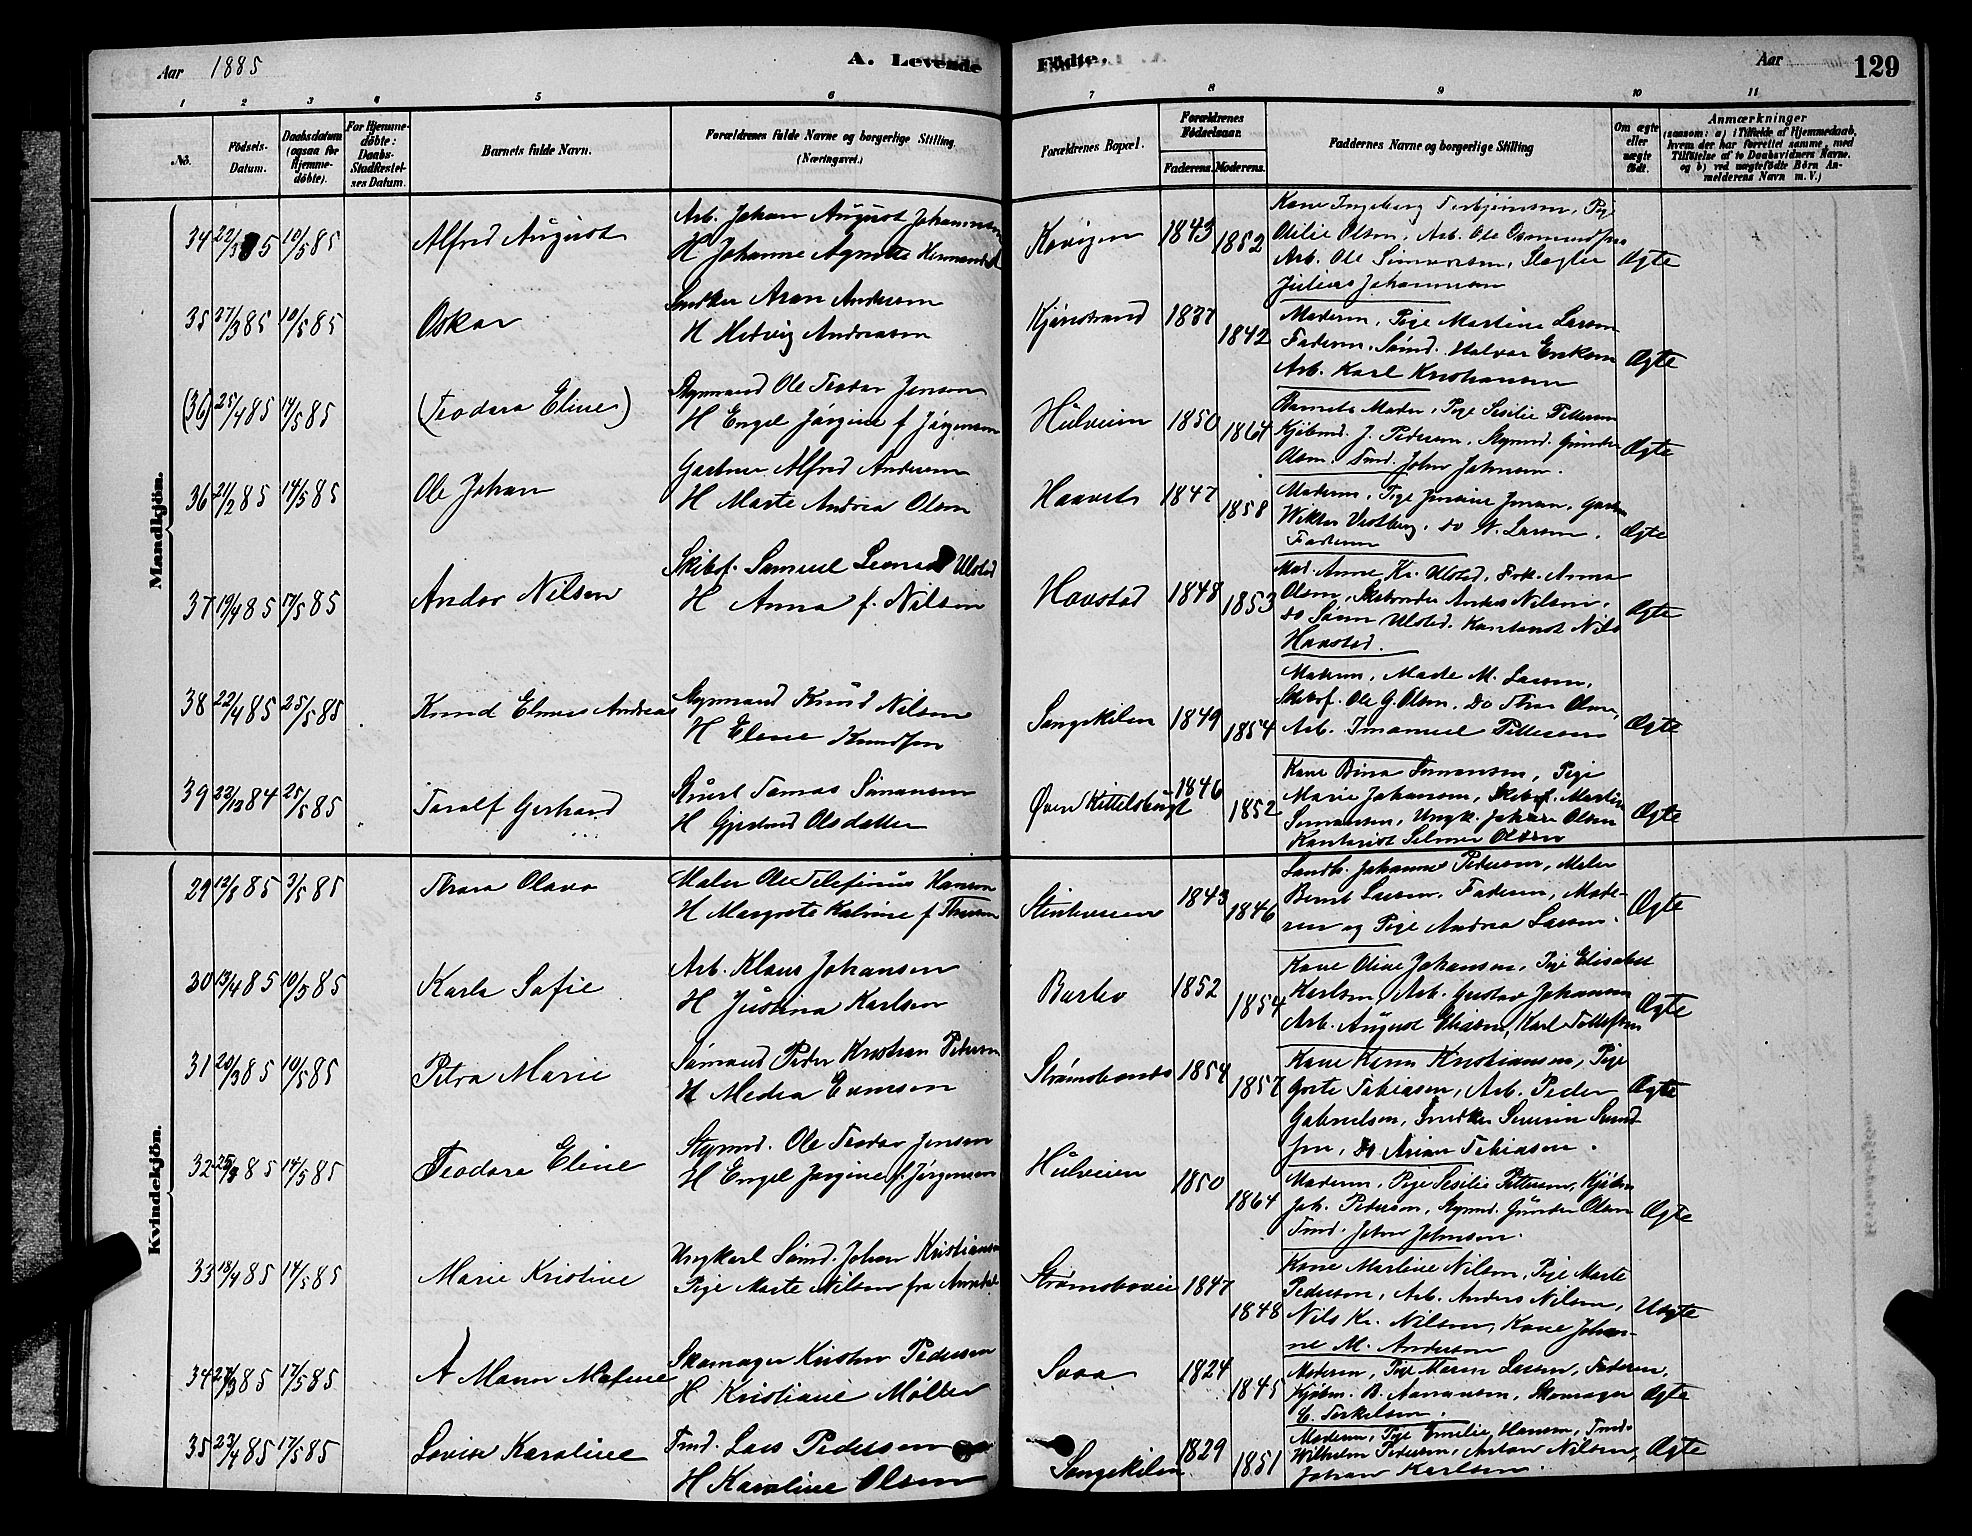 Aar 1885
A. Levende Födte.
Aar
129
1 2 3 4 5 6 7 8 9 10 11
No.
Födsels-Datum.
Daabsdatum (ogsaa for Hjemme-döbte).
For Hjemme-döbte: Daabs-Stadfæstel-ses Datum.
Barnets fulde Navn.
Forældrenes fulde Navne og borgerlige Stilling (Næringsvei.)
Forældrenes Bopæl.
Forældrenes Födselsaar.
Faderens. Moderens.
Faddernes Navne og borgerlige Stilling
Om ægte eller uægte født.
Anmærkninger
(saasom: a) i Tilfælde af Hjemmedaab, hvem der har forrettet samme, med Tilföielse af to Daabsvidners Navne, og b) ved uægtefödte Börn An-melderens Navn m. V.)
Mandkjön.
34 22/3 85 10/5 85 Alfred August
Arb. Johan August Johannesen
H Johanne Agnethe Hermansd
1843 1852
Kone Ingeborg Torbjørnsen, Pige
Otilie Olsen, Arb. Ole Osmundsen
Arb. Ole Simonsen, Slagter
Julius Johannesen
Ægte
35 27/3 85 10/5 85 Oskar
Snedker Aron Andersen
H Hedvig Andreasen
Kjønstrand 1837 1842
Moderen, Pige Martine Larsen
Faderen, Sømd. Halvor Eriksen
Arb. Karl Kristiansen
Ægte
(36) 25/4 85 14/5 85 (Teodora Eline)
Styrmand Ole Teodor Jensen
H Engel Jørgine f Jørgensen
Hulveien 1850 1864
Barnets Moder, Pige Sesilie Pettersen
Kjøbmd. J. Pedersen, Styrmd. Gunder
Olsen. Tmd. John Johnsen.
Ægte
36 21/2 85 14/5 85 Ole Johan
Gartner Alfred Andersen
H Marte Andrea Olsen
1847 1858
Moderen, Pige Jensine Jensen, Gartn
Wiktor Vestberg, do W. Larsen.
Faderen
Ægte
37 19/4 85 17/5 85 Andor Nilsen
Skibsf. Samuel Ulsted
H Anna f. Nilsen
Havstad 1848 1853
Mad. Anne Kr. Ulsted, Frk. Anna
Olsen, Anders Nilsen,
do Søren Ulsted. Kontorist Nils
Havstad.
Ægte
38 22/4 85 25/5 85 Knud Elmas Andreas
Styrmand Knud Nilsen
H Elene Knudsen
Songekilen 1849 1854
Moderen, Made M. Larsen,
Skibsf. Ole G. Olsen, do Thor Olsen,
Arb. Imanuel Tellefsen
Ægte
39 22/12 84 25/5 85 Taralf Gerhard
Stuert Tomas Simonsen
H Gjertrud Olsdatter
Øvre Kittelsbugt 1846 1852
Kone Bina Simonsen, Pige
Marie Johansen, Skibsf. Martin
Simonsen, Ungk. Johan Olsen
Kontorist Selmer Olsen
Ægte
Kvindekjön.
29 12/3 85 3/5 85 Thora Olava
Maler Ole Telefinius Hansen
H Margrete Katrine f Thorsen
1843 1846
Landh. Johannes Pedersen, Maler
Bernt Larsen. Faderen, Mode-
ren og Pige Andrea Larsen.
Ægte
30 13/4 85 10/5 85 Karla Sofie
Arb. Klaus Johansen
H Justina Karlsen
Barbo 1852 1854
Kone Oline Johansen, Pige Elisabet
Karlsen, Arb. Gustav Johansen
Arb. August Eliasen, Karl Tollefsen
Ægte
31 20/3 85 10/5 85 Petra Marie
Sømand Peder Kristian Petersen
H Medea Evensen
Strømsbonds 1854 1857
Kone Karen Kristiansen, Pige
Grete Tobiasen, Arb. Peder
Gabrielsen, Snedker Severin Sund
sen, do Arian Tobiasen.
Ægte
32 25/3 85 14/5 85 Teodora Eline
Styrmd. Ole Teodor Jensen
H Engel Jørgine f. Jørgensen
Hulveien 1850 1864
Moderen, Pige Sesilie Pettersen, Kjøbm
Joh. Pedersen, Styrmd. Gunder Olsen
Tmd. John Johnsen.
Ægte
33 18/4 85 14/5 85 Marie Kristine
Ungkarl Sømd. Johan Kristiansen
Pige Marte Nilsen fra Arendal
Strømsboveie 1847 1848
Kone Martine Nilsen, Pige Marte
Pedersen, Arb. Anders Nilsen,
Nils Kr. Nilsen, Kone Johan-
ne M. Andersen
Uægte
34 27/3 85 17/5 85 A Maren
Skomager Kristen Pedersen
H Kristiane Møller
Svaa 1824 1845
Moderen, Pige Maren Larsen, Faderen,
Kjøbm. B. Aanansen, Skomager
C. Terkelsen.
Ægte
35 23/4 85 17/5 85 Lovise Karoline
Tmd. Lars Pedersen
H Karoline Olsen
Songekilen 1829 1851
Moderen, Pige Emilie Hansen, Tmd.
Wilhelm Pedersen, Anton Nilsen,
Johan Karlsen.
Ægte